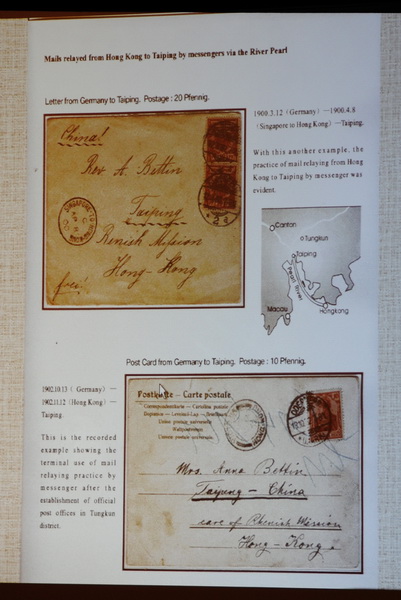 Mails relayed from Hong Kong to Taiping by messengers via the River Pearl
Letter from Germany to Taiping. Postage : 20 Pfennig.
China!
Rev. A. Bettin
Taiping
Renish Mission
Hong-Kong
frei!
1900.3.12 ( Germany ) —1900.4.8
(Singapore to Hong Kong) —Taiping.
With this another example, the
practice of mail relaying from Hong
Kong to Taiping by messenger was
evident.
Canton
Tungkun
Taiping
Pearl River
Macau
Hongkong
Post Card from Germany to Taiping. Postage : 10 Pfennig.
1902.10.13 ( Germany) —
1902.11.12 (Hong Kong) —
Taiping.
This is the recorded
example showing the
terminal use of mail
relaying practice by
messenger after the
establishment of official
post offices in Tungkun
district.
Postkarte – Carte postale
Weltpostverein
Union postale universelle
Mrs. Anna Bettin
Taipung – China
care of Rhenish Mission
Hong-Kong.